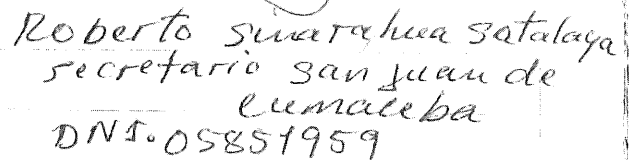 Roberto Sinarahua Satalaya
secretario San Juan de
cumaceba
DNI. 05851959